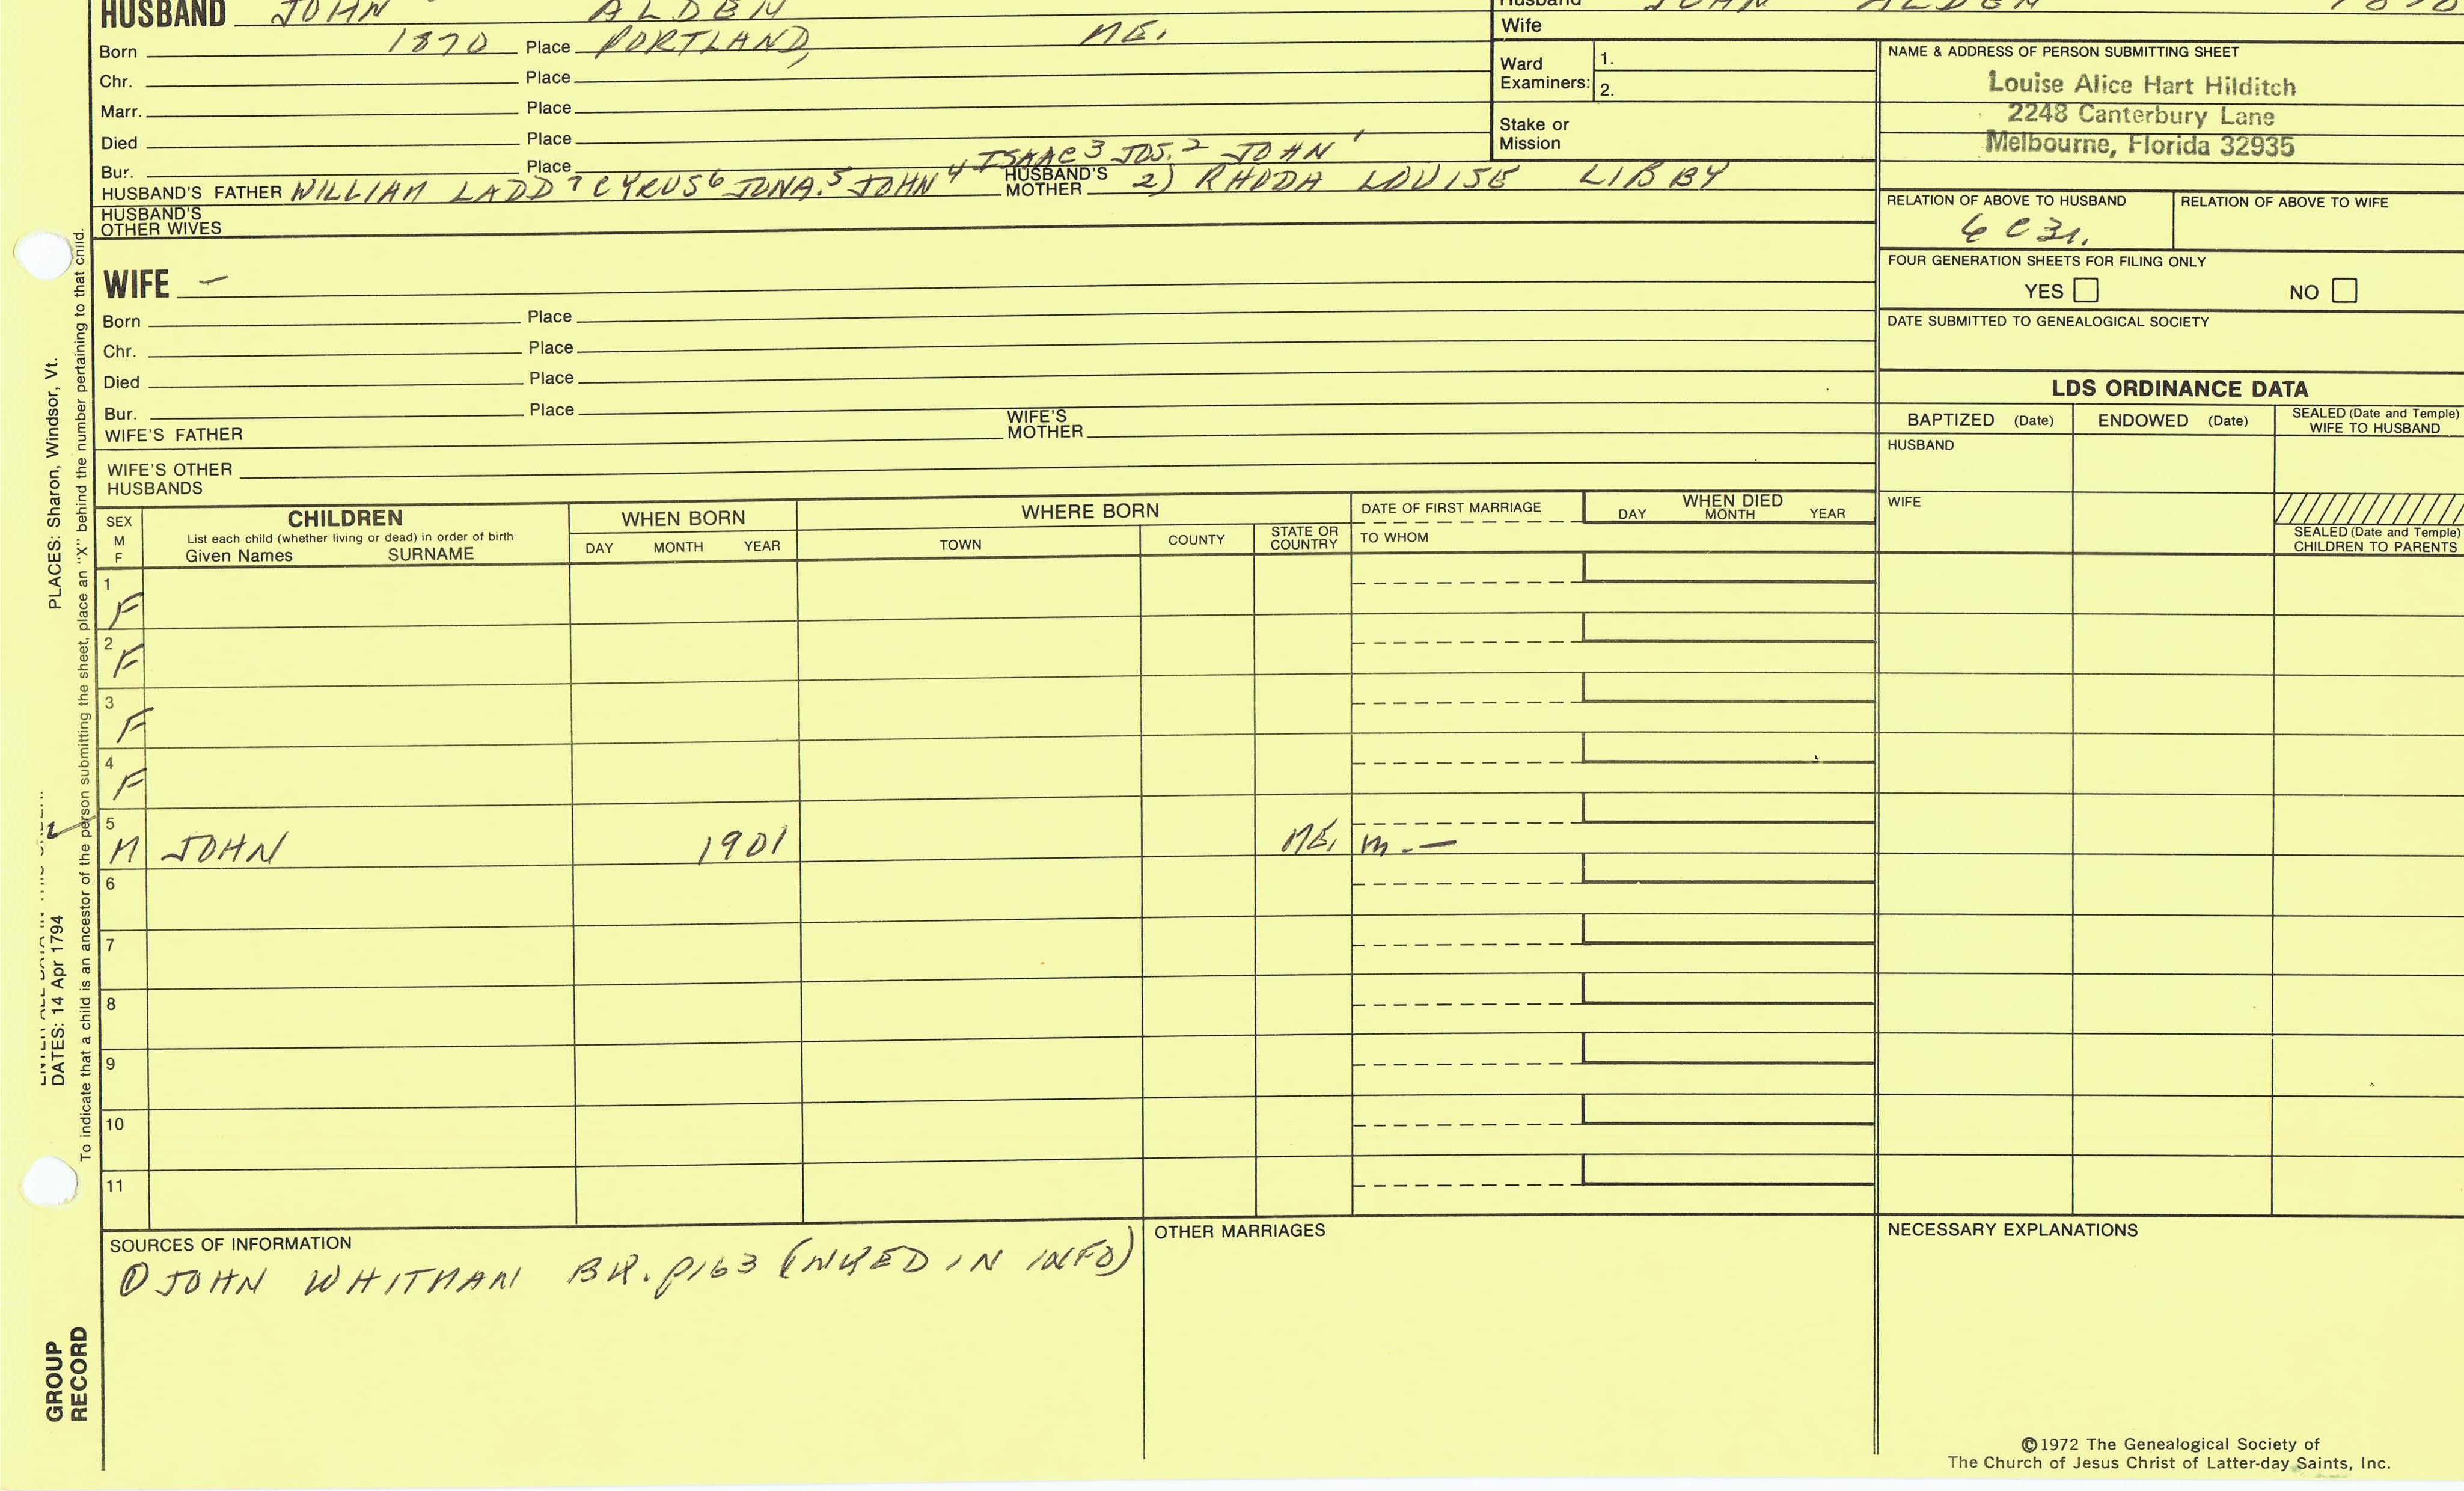 HUSBAND JOHN ALDEN
Husband JOHN ALDEN 1870
Wife
Born 1870 Place PORTLAND, ME.
Chr. Place
Marr. Place
Died Place
Bur. Place
ISAAC 3 JOS. 2 JOHN 1
HUSBAND'S FATHER WILLIAM LADD 7 CYRUS 6 JONA. 5 JOHN 4 HUSBAND'S MOTHER 2) RHODA LOUISE LIBBY
HUSBAND'S OTHER WIVES
Ward Examiners: 1.
2.
Stake or Mission
NAME & ADDRESS OF PERSON SUBMITTING SHEET
Louise Alice Hart Hilditch
2248 Canterbury Lane
Melbourne, Florida 32935
RELATION OF ABOVE TO HUSBAND RELATION OF ABOVE TO WIFE
6 C 3r.
FOUR GENERATION SHEETS FOR FILING ONLY
YES NO
DATE SUBMITTED TO GENEALOGICAL SOCIETY
WIFE —
Born Place
Chr. Place
Died Place
Bur. Place
WIFE'S FATHER WIFE'S MOTHER
WIFE'S OTHER HUSBANDS
LDS ORDINANCE DATA
BAPTIZED (Date) ENDOWED (Date) SEALED (Date and Temple) WIFE TO HUSBAND
HUSBAND
WIFE
SEALED (Date and Temple) CHILDREN TO PARENTS
SEX M F
CHILDREN
List each child (whether living or dead) in order of birth
Given Names SURNAME
WHEN BORN
DAY MONTH YEAR
WHERE BORN
TOWN COUNTY STATE OR COUNTRY
DATE OF FIRST MARRIAGE
TO WHOM
WHEN DIED
DAY MONTH YEAR
1 F
2 F
3 F
4 F
5 M JOHN 1901 ME. m. —
6
7
8
9
10
11
SOURCES OF INFORMATION
① JOHN WHITMAN BK. p163 (INKED IN INFO)
OTHER MARRIAGES
NECESSARY EXPLANATIONS
©1972 The Genealogical Society of
The Church of Jesus Christ of Latter-day Saints, Inc.
PLACES: Sharon, Windsor, Vt.
DATES: 14 Apr 1794
To indicate that a child is an ancestor of the person submitting the sheet, place an "X" behind the number pertaining to that child.
GROUP
RECORD